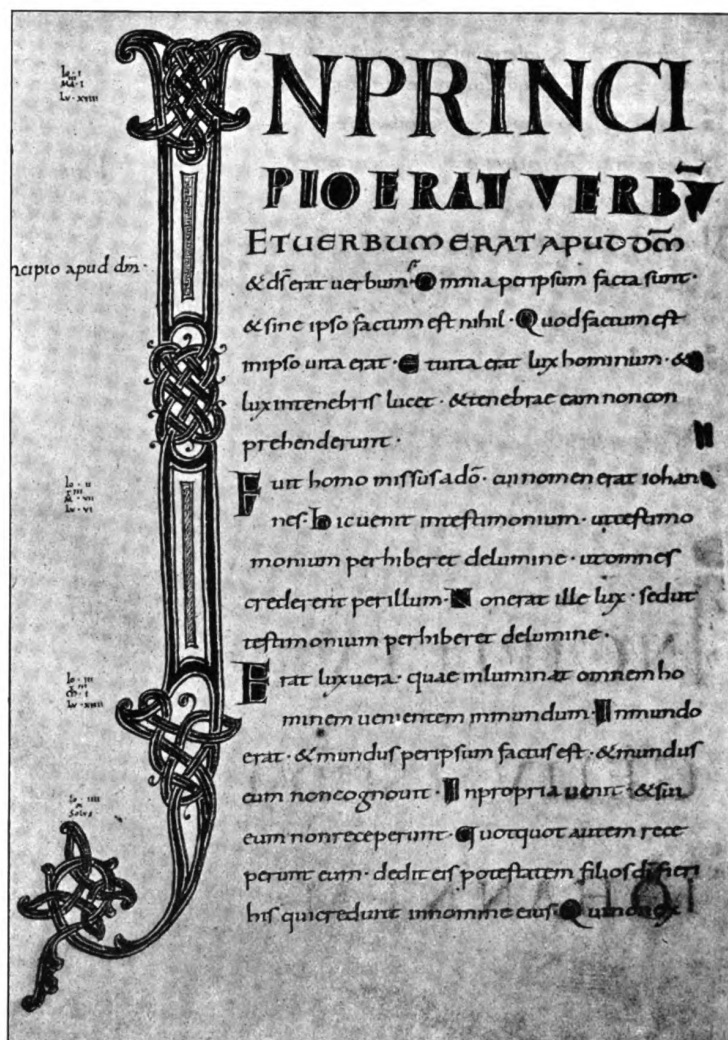 INPRINCI
PIO ERAT VERBṼ
ET UERBUM ERAT APUD DM̄
ncipio apud dm̄ ·
& ds̄ erat uerbum · Omnia per ipsum facta sunt ·
& sine ipso factum est nihil · Quod factum est
in ipso uita erat · Et uita erat lux hominum · &
lux in tenebris lucet · & tenebrae eam non con
prehenderunt ·
Fuit homo missus a dō · cui nomen erat iohan
nes · hic uenit in testimonium · ut testimo
monium perhiberet de lumine · ut omnes
crederent per illum · Non erat ille lux · sed ut
testimonium perhiberet de lumine ·
Erat lux uera · quae inluminat omnem ho
minem uenientem in mundum · In mundo
erat · & mundus per ipsum factus est · & mundus
eum non cognouit · In propria uenit · & sui
eum non receperunt · Quotquot autem rece
perunt eum · dedit eis potestatem filios dī fieri
his qui credunt in nomine eius · Qui non ex
Io · I
Lv · XVIII
Io · II
Lv · VI
Io · III
Lv · XVIII
Io · IIII
Solus